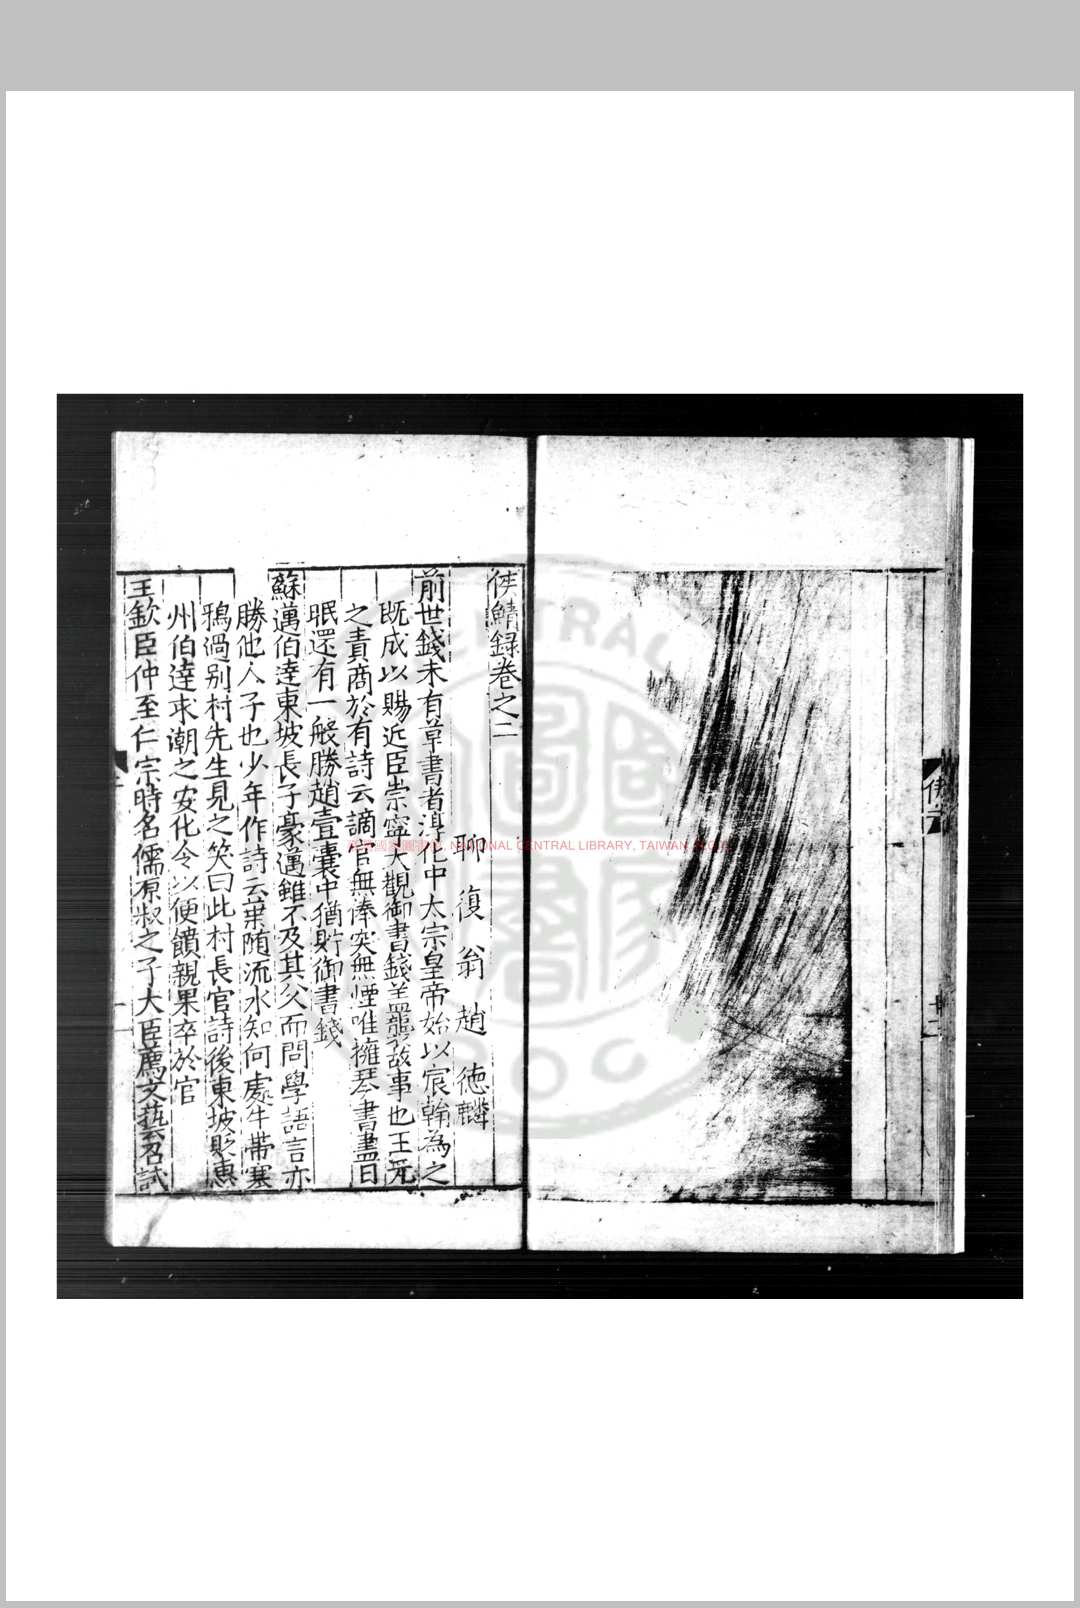 侯鯖録卷之二
聊復翁趙德麟
前世錢未有草書者淳化中太宗皇帝始以宸翰為之
既成以賜近臣崇寧大觀御書錢盖襲故事也王元
之責商於有詩云謫官無俸突無煙唯擁琴書盡日
眠還有一般勝趙壹囊中猶貯御書錢
蘇邁伯達東坡長子豪邁雖不及其父而問學語言亦
勝他人子也少年作詩云葉随流水知何處牛帶寒
鴉過别村先生見之笑曰此村長官詩後東坡貶惠
州伯達求潮之安化令以便饋親果卒於官
王欽臣仲至仁宗時名儒原叔之子大臣薦文藝召試
NATIONAL CENTRAL LIBRARY, TAIWAN